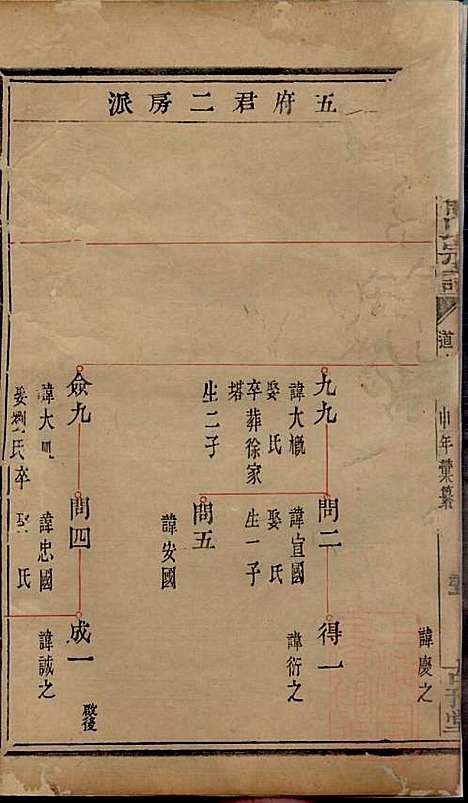 五府君二房派
宗譜
道
年彙纂
諱慶之
九九
諱大概
娶 氏
卒葬徐家
塔
生二子
問二
諱宣國
娶 氏
生一子
得一
諱衍之
問五
諱安國
僉九
諱大
娶劉氏卒
問四
諱忠國
娶 氏
成一
諱誠之
啟後